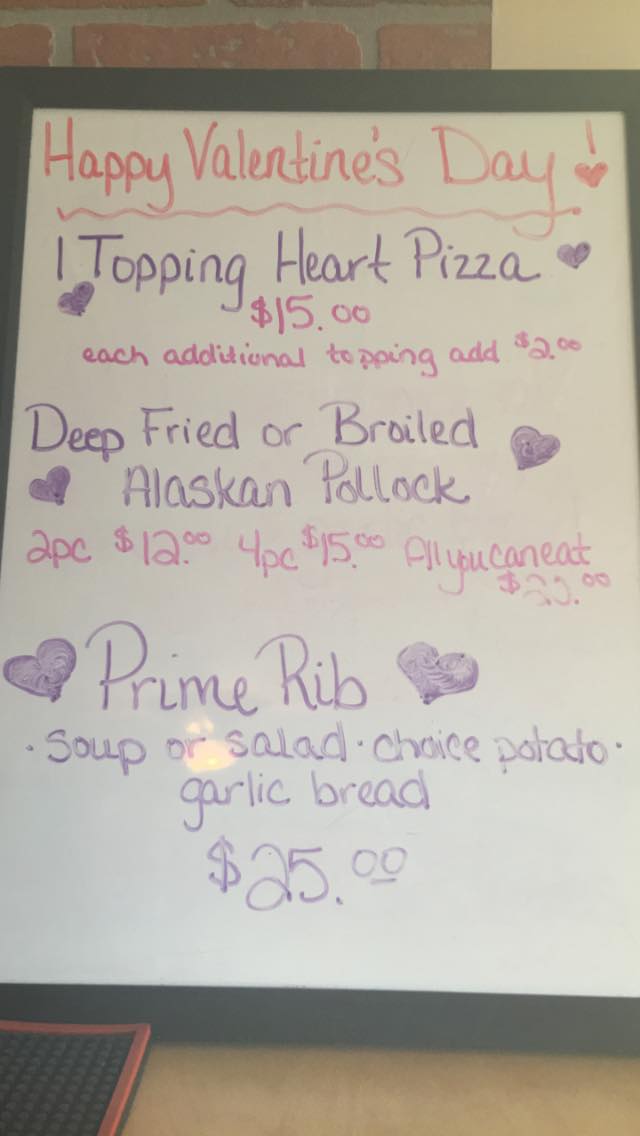 Happy Valentine's Day!
1 Topping Heart Pizza
$15.00
each additional topping add $2.00
Deep Fried or Broiled
Alaskan Pollock
2pc $12.00 4pc $15.00 All you can eat
Prime Rib
· Soup or salad · choice potato ·
garlic bread
$25.00